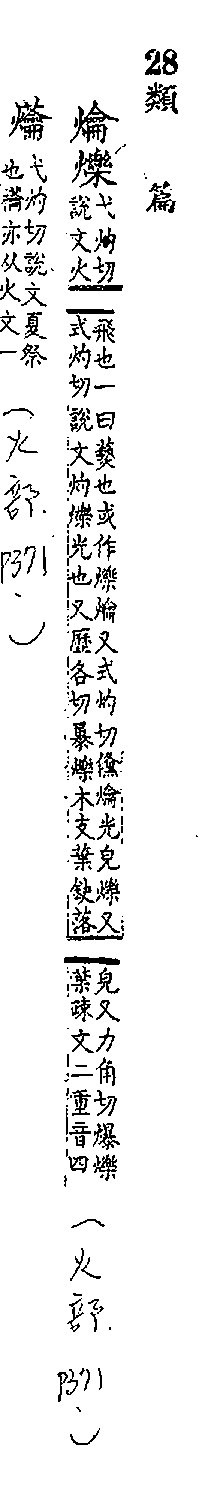 28類篇
爚爍弋灼切說文火飛也一曰爇也或作爍爚又式灼切爚光皃爍又式灼切說文灼爍光也又歷各切暴爍木支葉缺落皃又力角切爆爍葉疎文二重音四（火部.P371、）
弋灼切說文夏祭也或亦从火文一（火部.P371、）